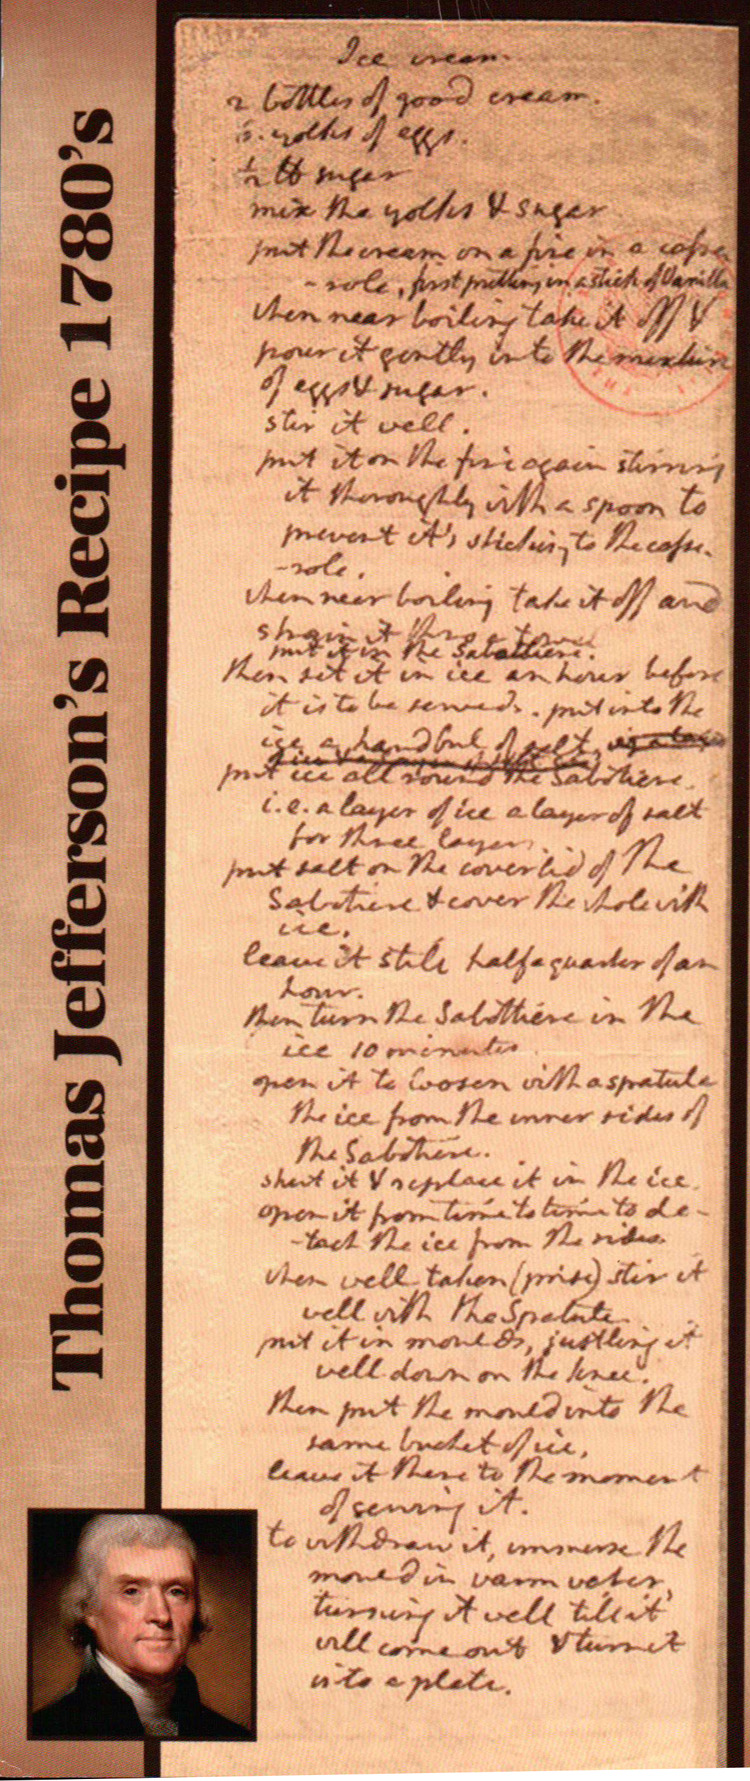 Thomas Jefferson's Recipe 1780's
Ice cream.
2 bottles of good cream.
6. yolks of eggs.
1/2 lb sugar
mix the yolks & sugar
put the cream on a fire in a casse-
-role, first putting in a stick of Vanilla
when near boiling take it off &
pour it gently into the mixture
of eggs & sugar.
stir it well.
put it on the fire again stirring
it thoroughly with a spoon to
prevent it's sticking to the casse-
-role.
when near boiling take it off and
strain it thro' a towel
put it in the Sabottiere.
then set it in ice an hour before
it is to be served. put into the
ice a handful of salt
put ice all round the Sabotiere.
i.e. a layer of ice a layer of salt
for three layers.
put salt on the coverlid of the
Sabotiere & cover the whole with
ice.
leave it still half a quarter of an
hour.
then turn the Sabottiere in the
ice 10 minutes
open it to loosen with a spatula
the ice from the inner sides of
the Sabotiere.
shut it & replace it in the ice.
open it from time to time to de-
-tach the ice from the sides
when well taken (prise) stir it
well with the Spatula.
put it in moulds, justling it
well down on the knee.
then put the mould into the
same bucket of ice.
leave it there to the moment
of serving it.
to withdraw it, immerse the
mould in warm water,
turning it well till it
will come out & turn it
into a plate.